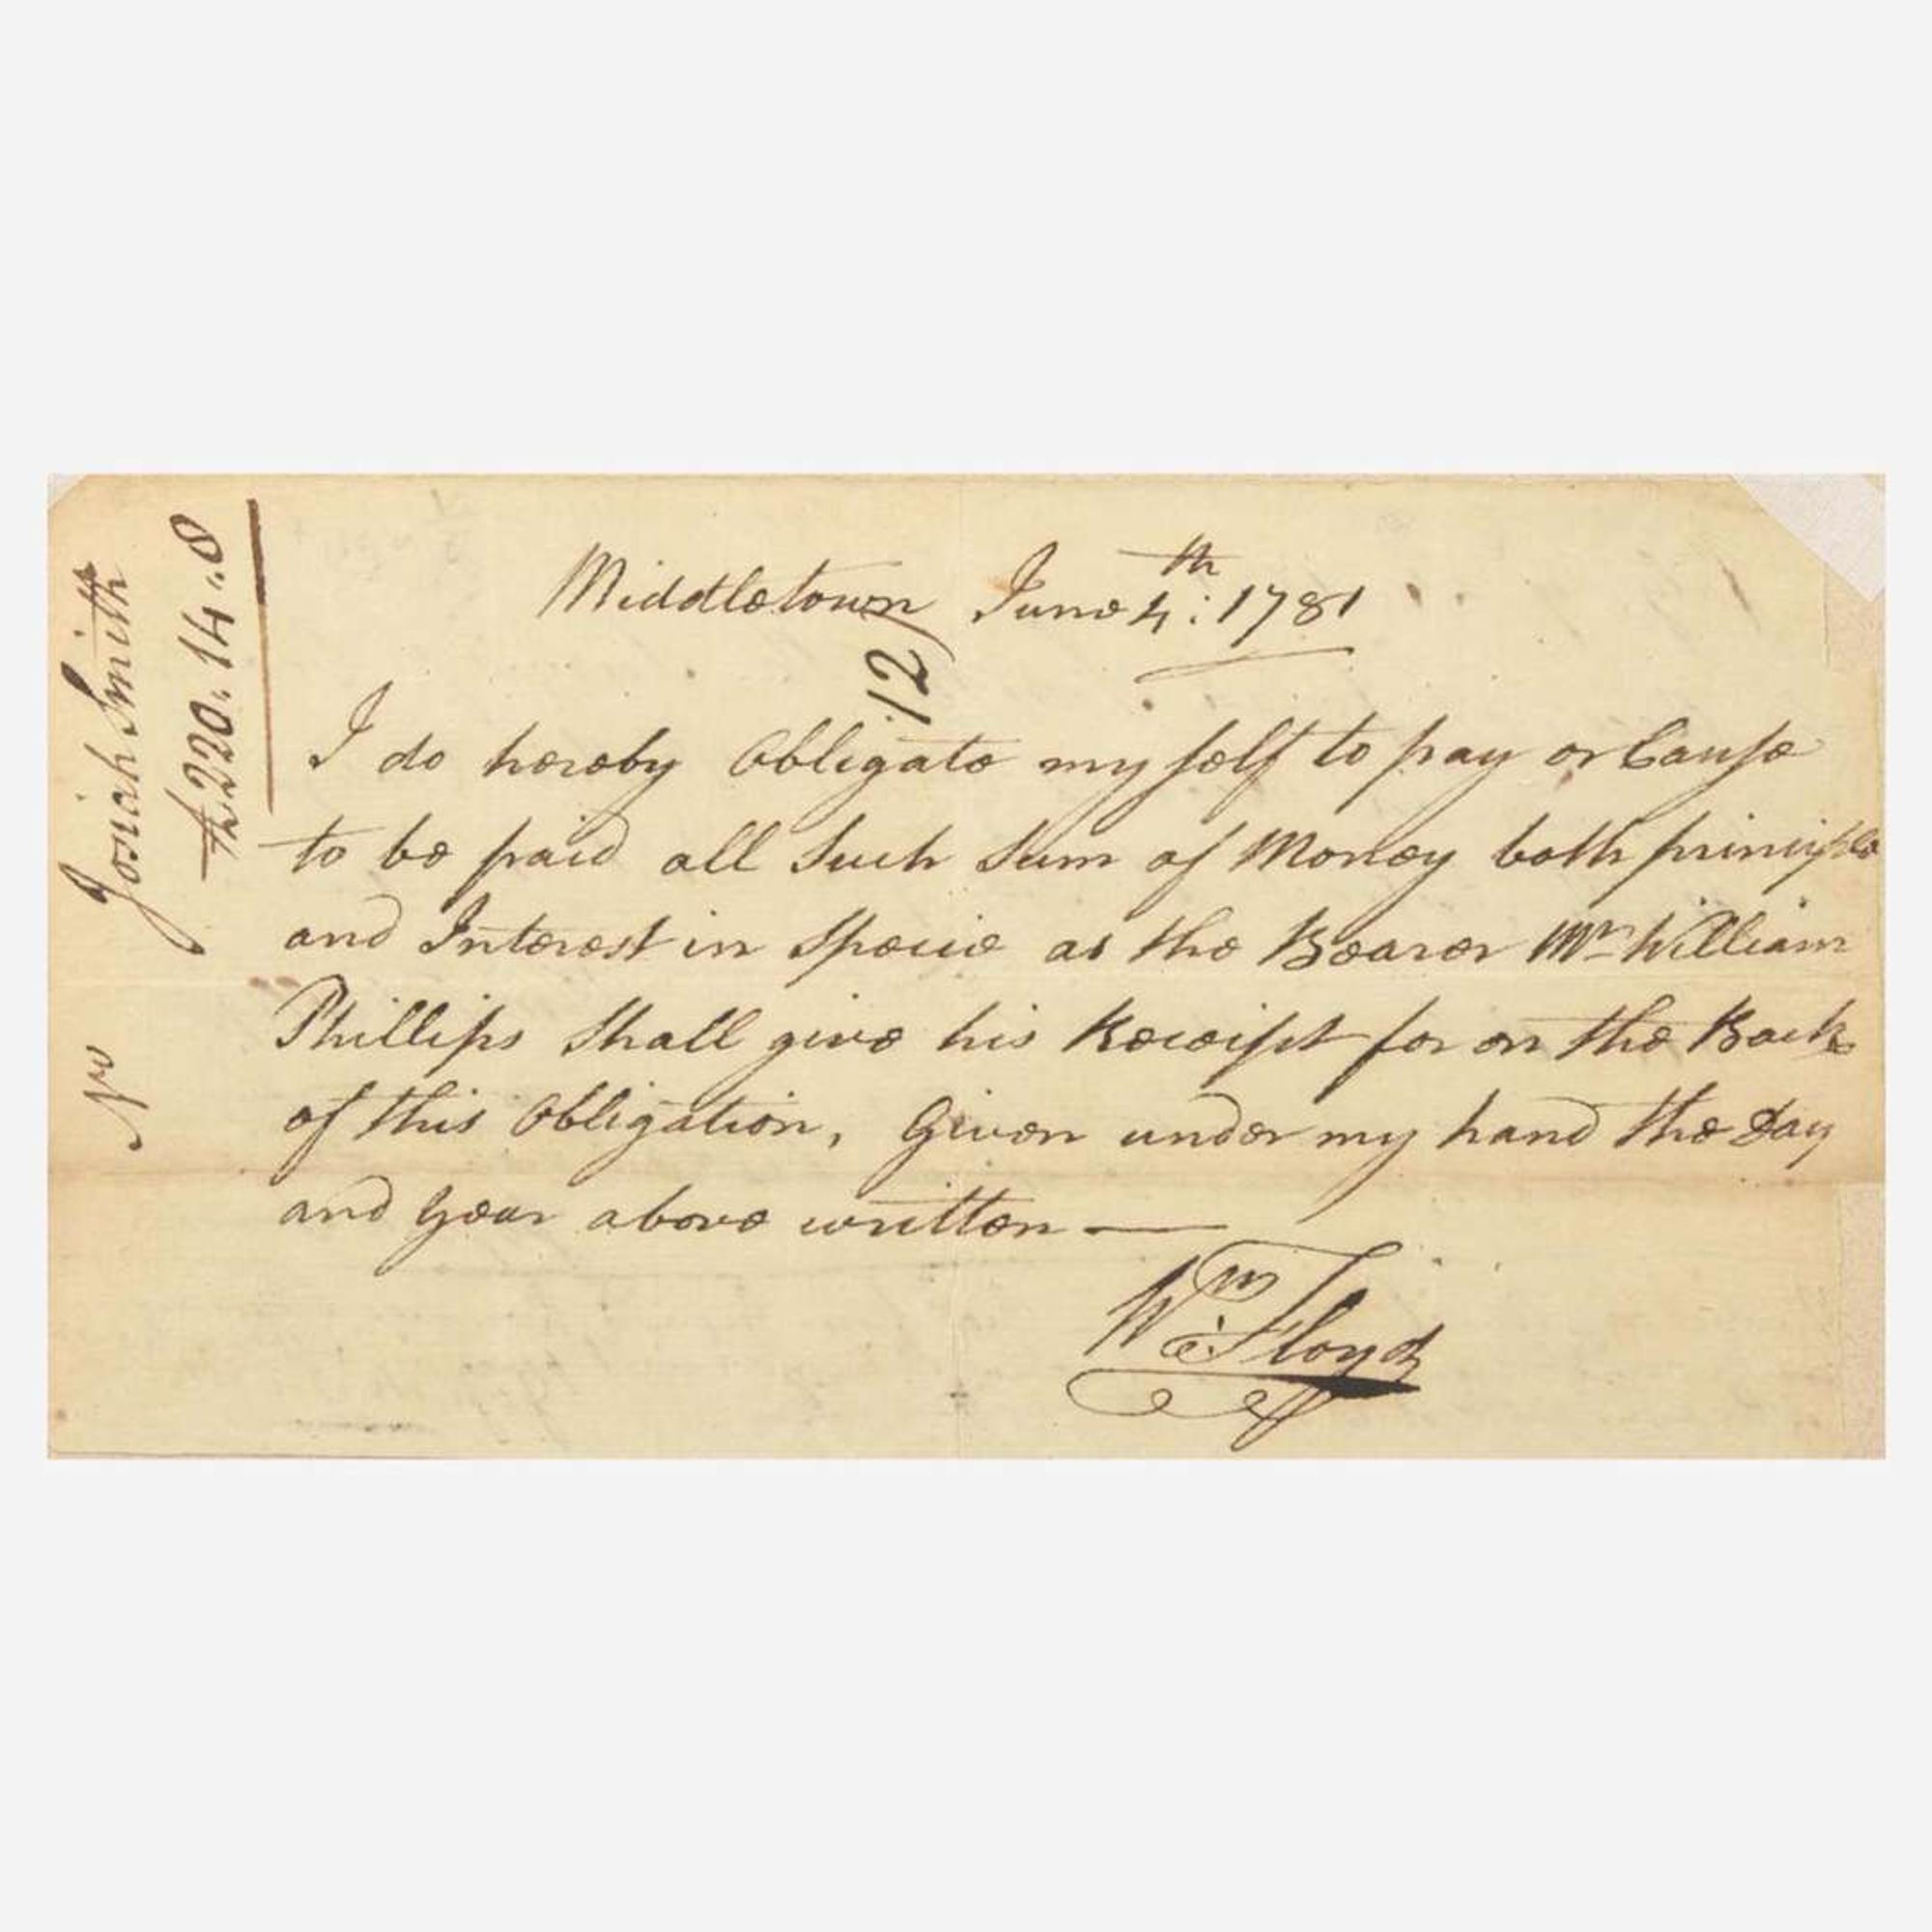 Middletown June 4th: 1781
12
I do hereby Obligate my self to pay or Cause
to be paid all Such Sum of Money both principle
and Interest in Specie as the Bearer Mr William
Phillips Shall give his Receipt for on the Back
of this Obligation, Given under my hand the Day
and Year above written —
Wm Floyd
No Josiah Smith
£220.14.8